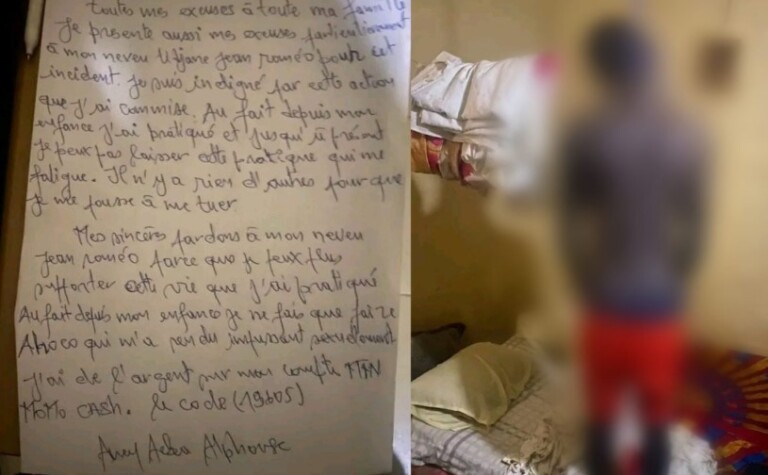 toutes mes excuses à toute ma famille
Je présente aussi mes excuses particulièrement
à mon neveu Jean roméo pour cet
incident. Je suis indigné par cette action
que j'ai commise. Au fait depuis mon
enfance j'ai pratiqué et jusqu'à présent
je peux pas laisser cette pratique qui me
fatigue. Il n'y a rien d'autres pour que
je me pousse à me tuer
Mes sincères pardons à mon neveu
Jean roméo parce que je peux plus
supporter cette vie que j'ai pratiqué
Au fait depuis mon enfance je ne fais que faire
qui m'a rendu impuissant sexuellement
J'ai de l'argent sur mon compte MTN
MOMO CASH. le code (19605)
Alphonse